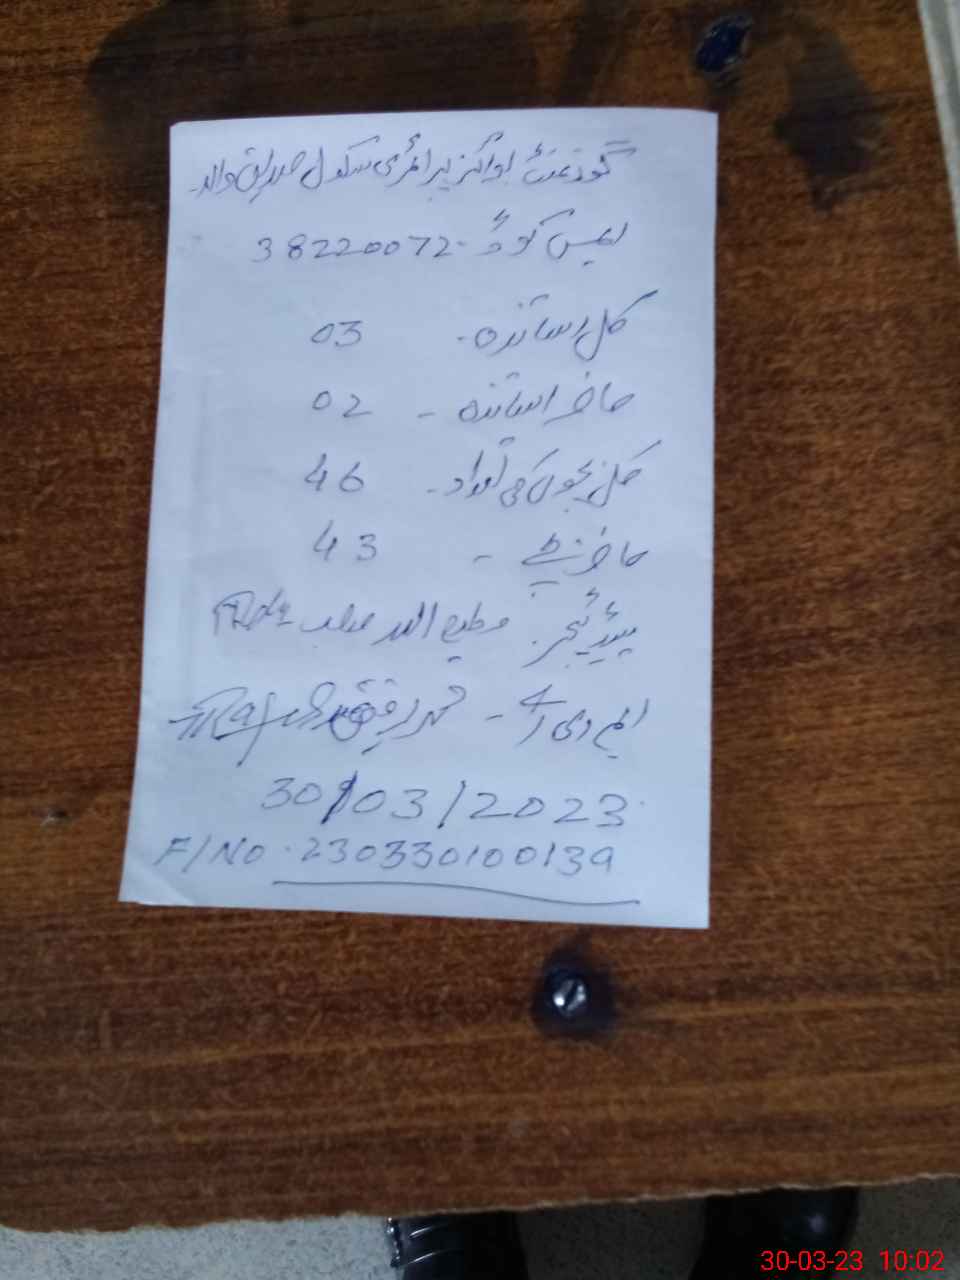 گورنمنٹ بوائز پرائمری سکول صدیق والہ۔
ایمس کوڈ۔ 38220072
کل اساتذہ۔ 03
حاضر اساتذہ۔ 02
کل بچوں کی تعداد۔ 46
حاضر بچے۔ 43
ہیڈ ٹیچر۔ مطیع اللہ صاحب
ایم ای اے۔ محمد رفیق
30/03/2023
F/NO. 230330100139
30-03-23 10:02